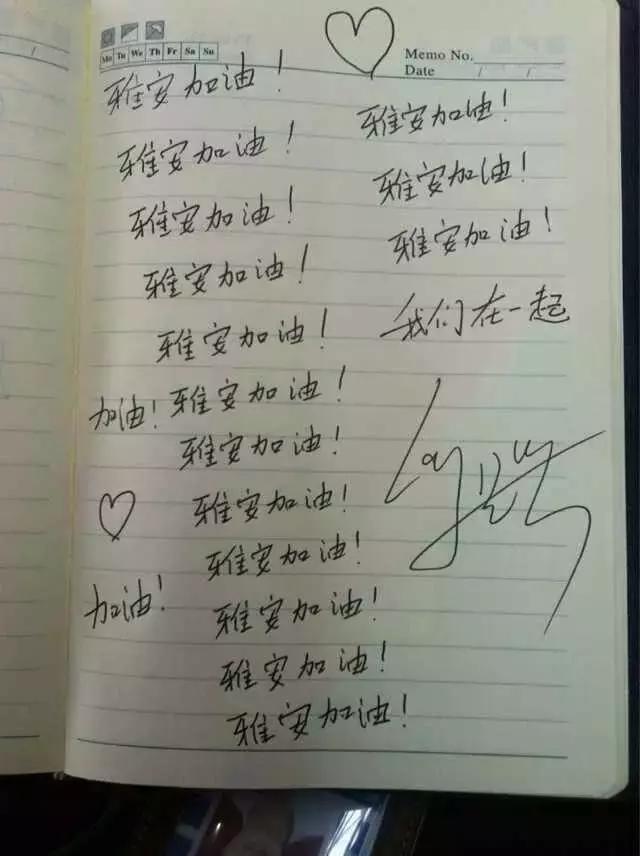 Mo Tu We Th Fr Sa Su
Memo No.
Date / /
雅安加油!
雅安加油!
雅安加油!
雅安加油!
雅安加油!
加油! 雅安加油!
雅安加油!
雅安加油!
雅安加油!
加油! 雅安加油!
雅安加油!
雅安加油!
雅安加油!
雅安加油!
雅安加油!
我们在一起